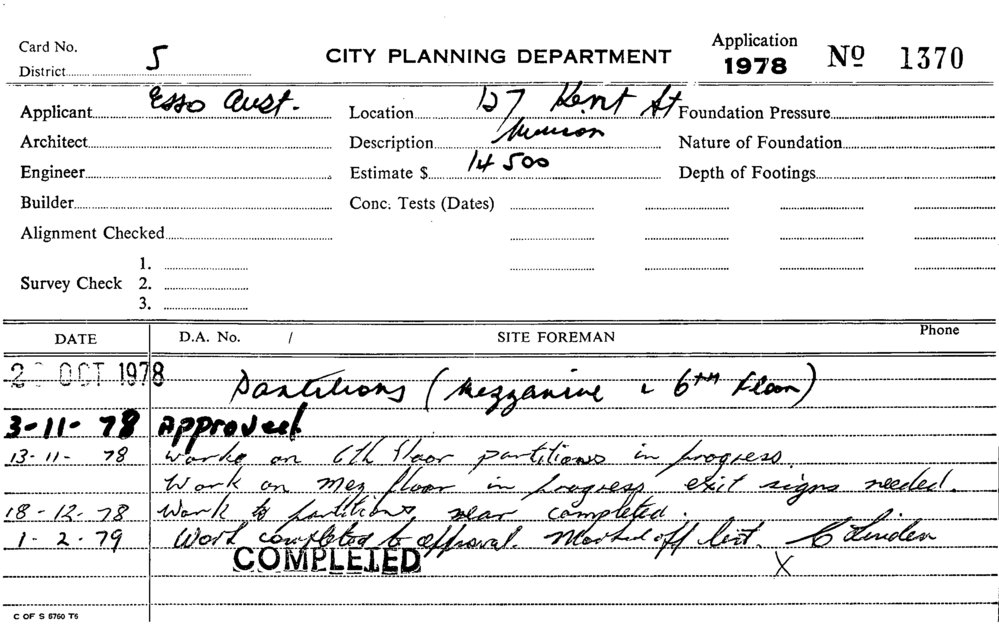 Card No.
District 5
CITY PLANNING DEPARTMENT
Application
1978 Nº 1370
Applicant Esso Aust. Location 127 Kent St Foundation Pressure
Architect Description Nature of Foundation
Engineer Estimate $ 14 500 Depth of Footings
Builder Conc. Tests (Dates)
Alignment Checked
1.
Survey Check 2.
3.
DATE D.A. No. / SITE FOREMAN Phone
OCT 1978 Partitions (Mezzanine & 6TH Floor)
3-11-78 Approved
13-11-78 works on 6th floor partitions in progress.
Work on mez floor in progress exit signs needed.
18-12-78 Work to partitions near completed.
1-2-79 Work completed to approval. Marked off list. C Linden
COMPLETED X
C OF S 5760 T5